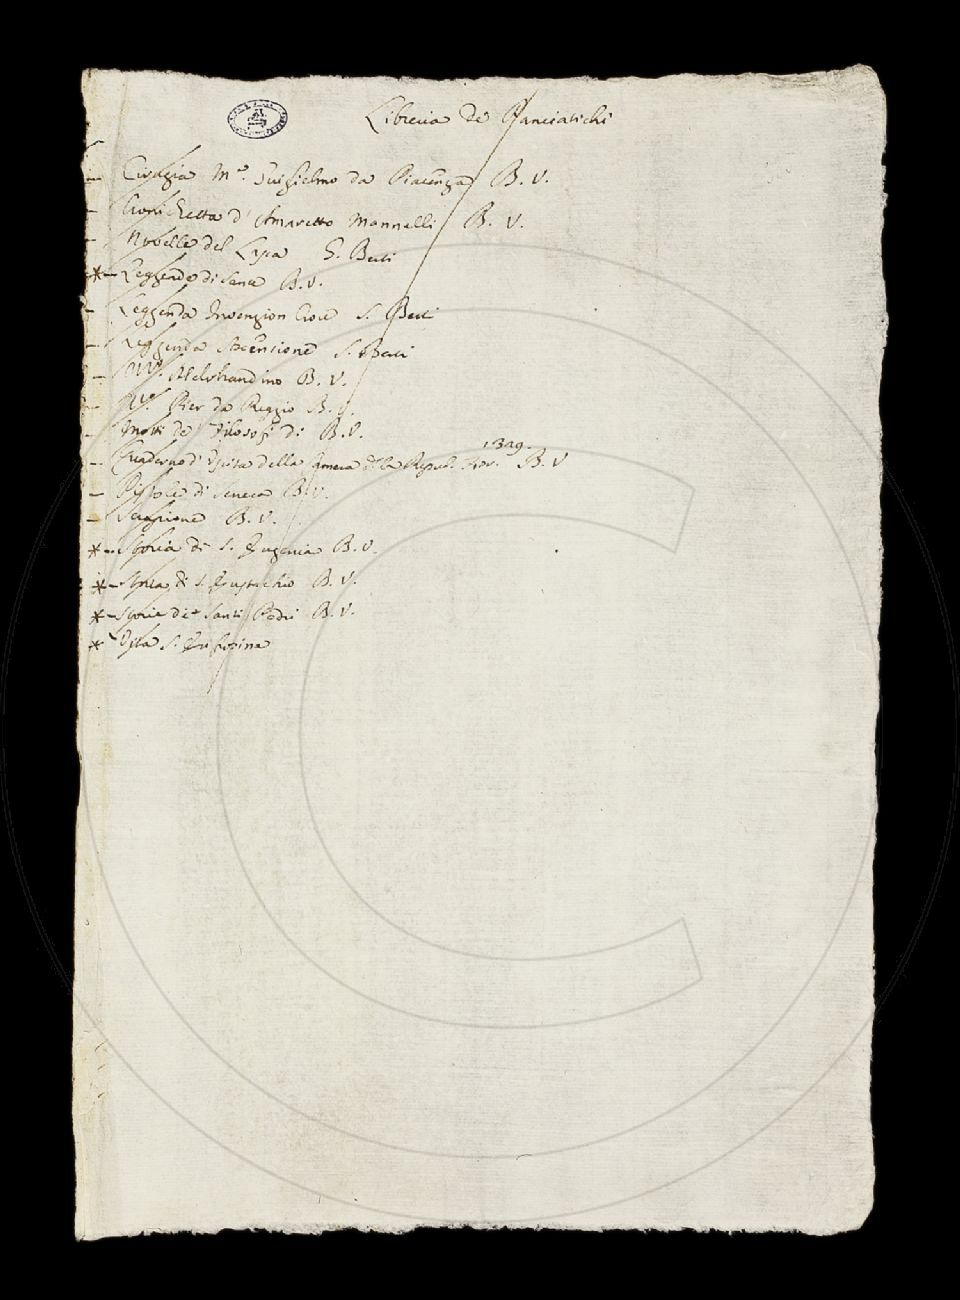 Libreria de Panciatichi
– Cirugia M.º Guiglielmo da Piacenza B. V.
– Cronichetta d'Amaretto Mannelli B. V.
– Novelle del Lasca S. Berti
*– Leggende di Santi B. V.
– Leggenda Invenzion Croce S. Berti
– Leggenda Ascensione S. Berti
– M.º Aldobrandino B. V.
– M.º Pier da Reggio B. V.
– Motti de Filosofi di B. V.
1329.
– Quaderno d'Uscita della Camera della Repub. Fior. B. V
– Pistole di Seneca B. V.
– Serapione B. V.
*– Storia di S. Eugenia B. V.
*– Storia di S. Eustachio B. V.
*– Storie de Santi Padri B. V.
* Vita S. Eufrosina